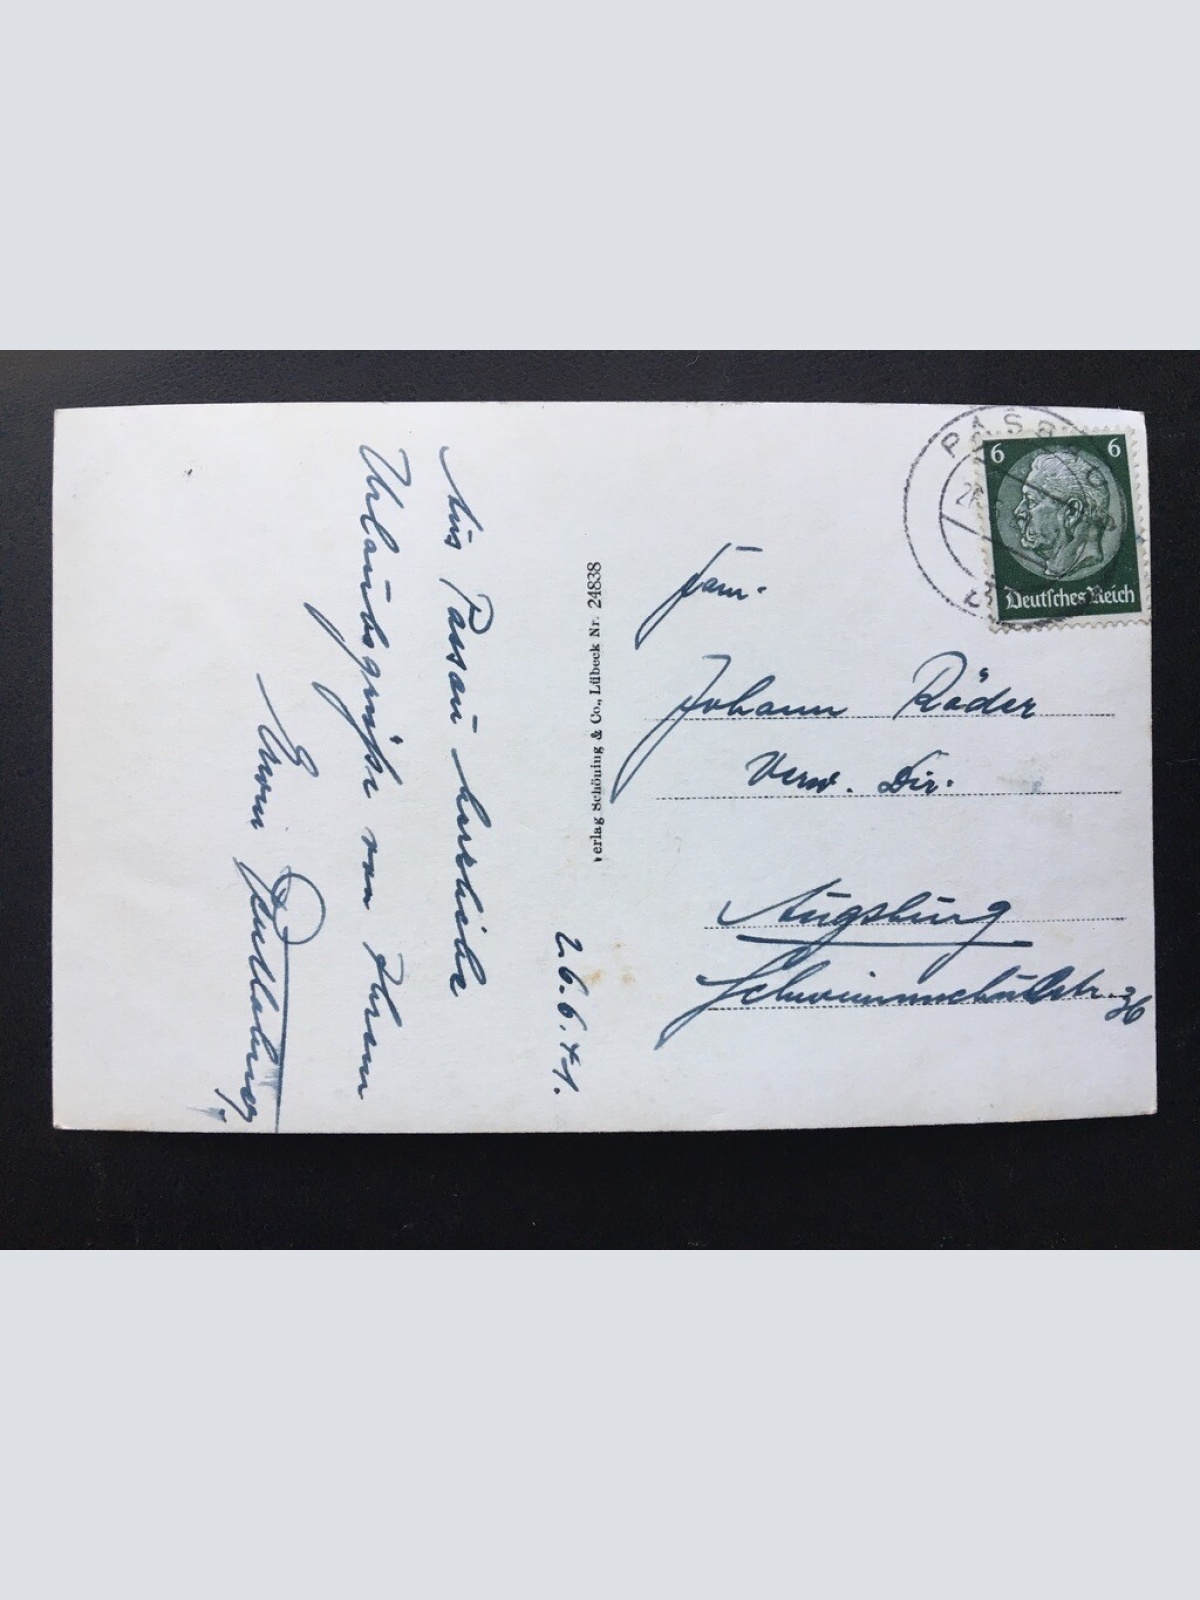 26.6.41.
Aus Passau herzliche
Urlaubsgrüße von Ihrem
Erwin
Verlag Schöning & Co., Lübeck Nr. 24838
PASSAU
6 6
Deutsches Reich
Fam.
Johann Räder
Verw. Dir.
Augsburg
Schwimmschulstr. 36